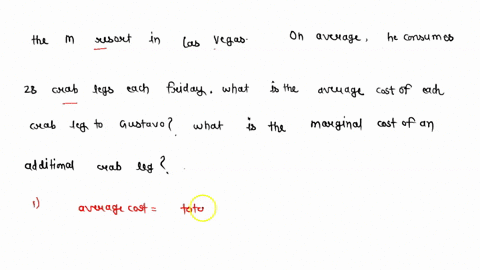 the M resort in Las Vegas. On average, he consumes
28 crab legs each Friday. what is the average cost of each
crab leg to Gustavo? what is the marginal cost of an
additional crab leg?.
1) average cost = tota